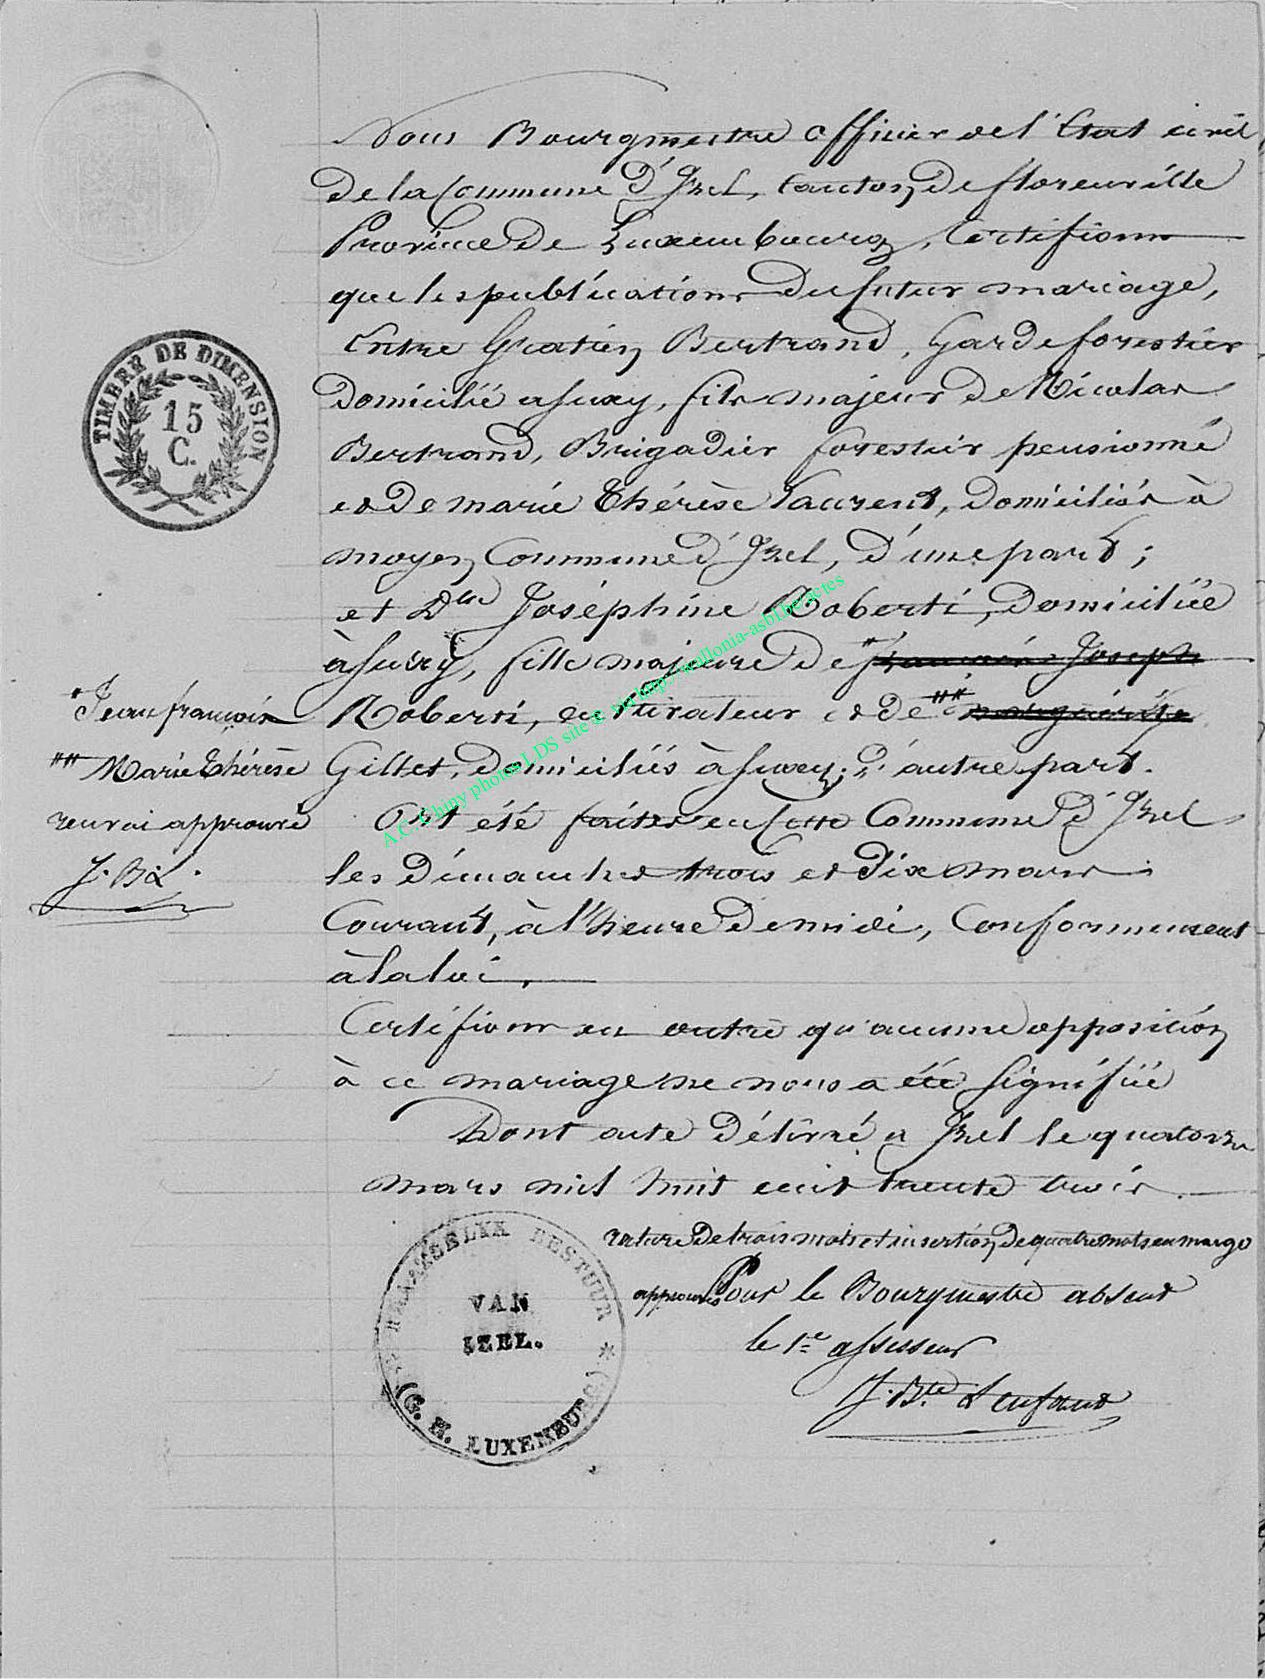 Nous Bourgmestre officier de l'Etat civil
de la Commune d'Izel, Canton de florenville
Province de Luxembourg, Certifions
que les publications du futur mariage,
Entre Gratien Bertrand, Garde forestier
Domicilié a Suxy, fils majeur de Nicolas
Bertrand, Brigadier forestier pensionné
et de marie Thérèse Laurent, Domiciliés à
moyen Commune d'Izel, d'une part;
et Dlle Joséphine Roberti, Domiciliée
à Suxy, fille majeure de * françois Joseph
* Jean françois
Roberti, cultivateur et de ** marguérite
** Marie Thérèse
Gillet, domiciliés à Suxy; d'autre part.
renvoi approuvé
J. Bte L.
Ont été faites en Cette Commune d'Izel
les Dimanches trois et Dix mars
Courant, à l'heure de midi, Conformément
à la loi.
Certifions en outre qu'aucune opposition
à ce mariage ne nous a été Signifiée
Dont acte Délivré a Izel le quatorze
mars mil huit cent trente trois.
rature de trois mots et insertion de quatre mots en marge
approuvés Pour le Bourgmestre absent
le 1re assesseur
J. Bte Lenfant
TIMBRE DE DIMENSION
15
C.
BESTUUR
VAN
IZEL.
(G. H. LUXEMBURG)
A.C. Chiny photos LDS site © sur http://wallonia-asbl.be/actes